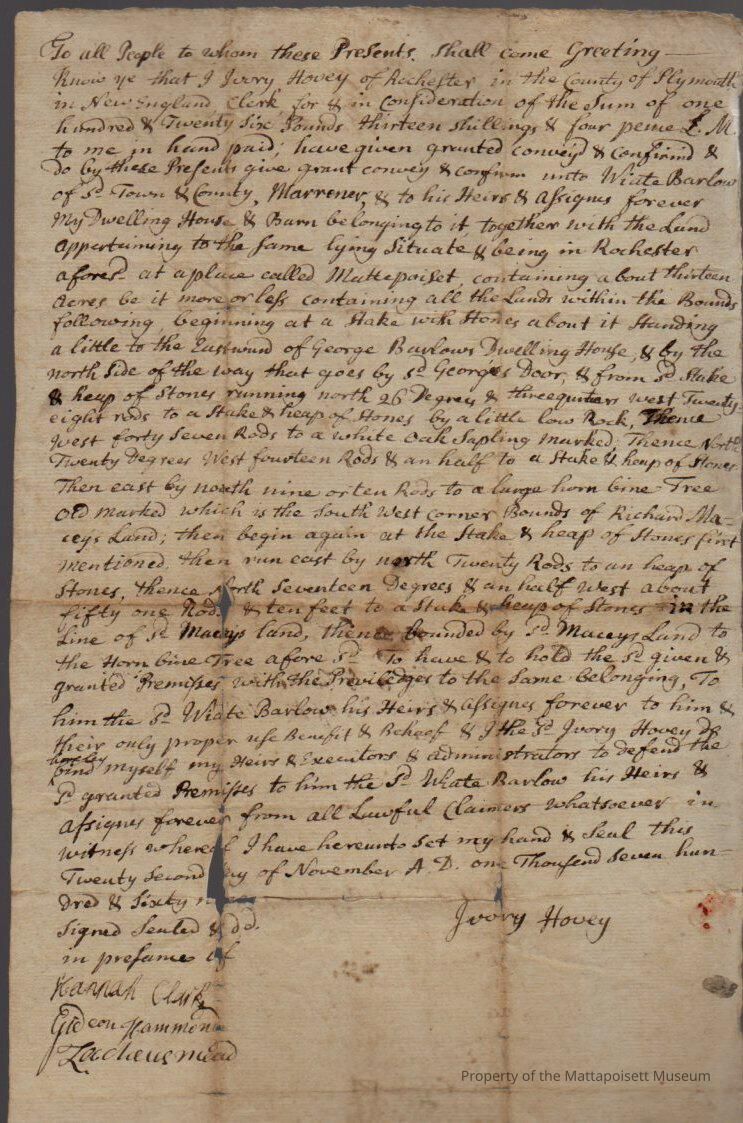 To all People to whom these Presents shall come Greeting
Know ye that I Ivory Hovey of Rochester in the County of Plymouth
in New England Clerk, for & in Consideration of the Sum of one
hundred & Twenty Six Pounds thirteen shillings & four pence L. M.
to me in hand paid; have given granted convey'd & confirm'd &
do by these Presents give grant convey & confirm unto Wiate Barlow
of sd. Town & County, Marrener, & to his Heirs & Assignes forever
My Dwelling House & Barn belonging to it, together with the Land
appertaining to the same lying Situate & being in Rochester
aforesd. at a place called Mattepoiset, containing about thirteen
Acres be it more or less containing all the Lands within the Bounds
following, beginning at a Stake with Stones about it Standing
a little to the Eastward of George Barlows Dwelling House, & by the
north Side of the way that goes by sd. Georges Door, & from sd. Stake
& heap of Stones running north 26 Degrees & threequarters West Twenty-
eight rods to a Stake & heap of Stones by a little low Rock, Thence
West forty Seven Rods to a white oak Sapling marked; Thence North
Twenty Degrees West fourteen Rods & an half to a Stake & heap of Stones
Then east by north nine or ten Rods to a large horn bine Tree
old marked which is the South West corner Bounds of Richard Ma-
ceys Land; then begin again at the Stake & heap of Stones first
mentioned, then run east by north Twenty Rods to an heap of
Stones, thence North Seventeen Degrees & an half West about
fifty one Rods & ten feet to a Stake & heap of Stones in the
Line of sd. Maceys land, thence bounded by sd. Maceys Land to
the Horn bine Tree afore sd. To have & to hold the sd. given &
granted Premisses with the Priviledges to the Same belonging, To
him the sd. Wiate Barlow his Heirs & Assignes forever to him &
their only proper use Benefit & Behoof & I the sd. Ivory Hovey do
hereby
bind myself my Heirs & Executors & administrators to defend the
sd. granted Premisses to him the sd. Wiate Barlow his Heirs &
Assignes forever from all Lawful Claimers whatsoever in
witness whereof I have hereunto Set my hand & Seal this
Twenty Second Day of November A. D. one Thousend Seven hun-
dred & Sixty
Signed Sealed & dd.
in presence of
Ivory Hovey
Hannah Clark
Gideon Hammond
Zacheus mead
Property of the Mattapoisett Museum